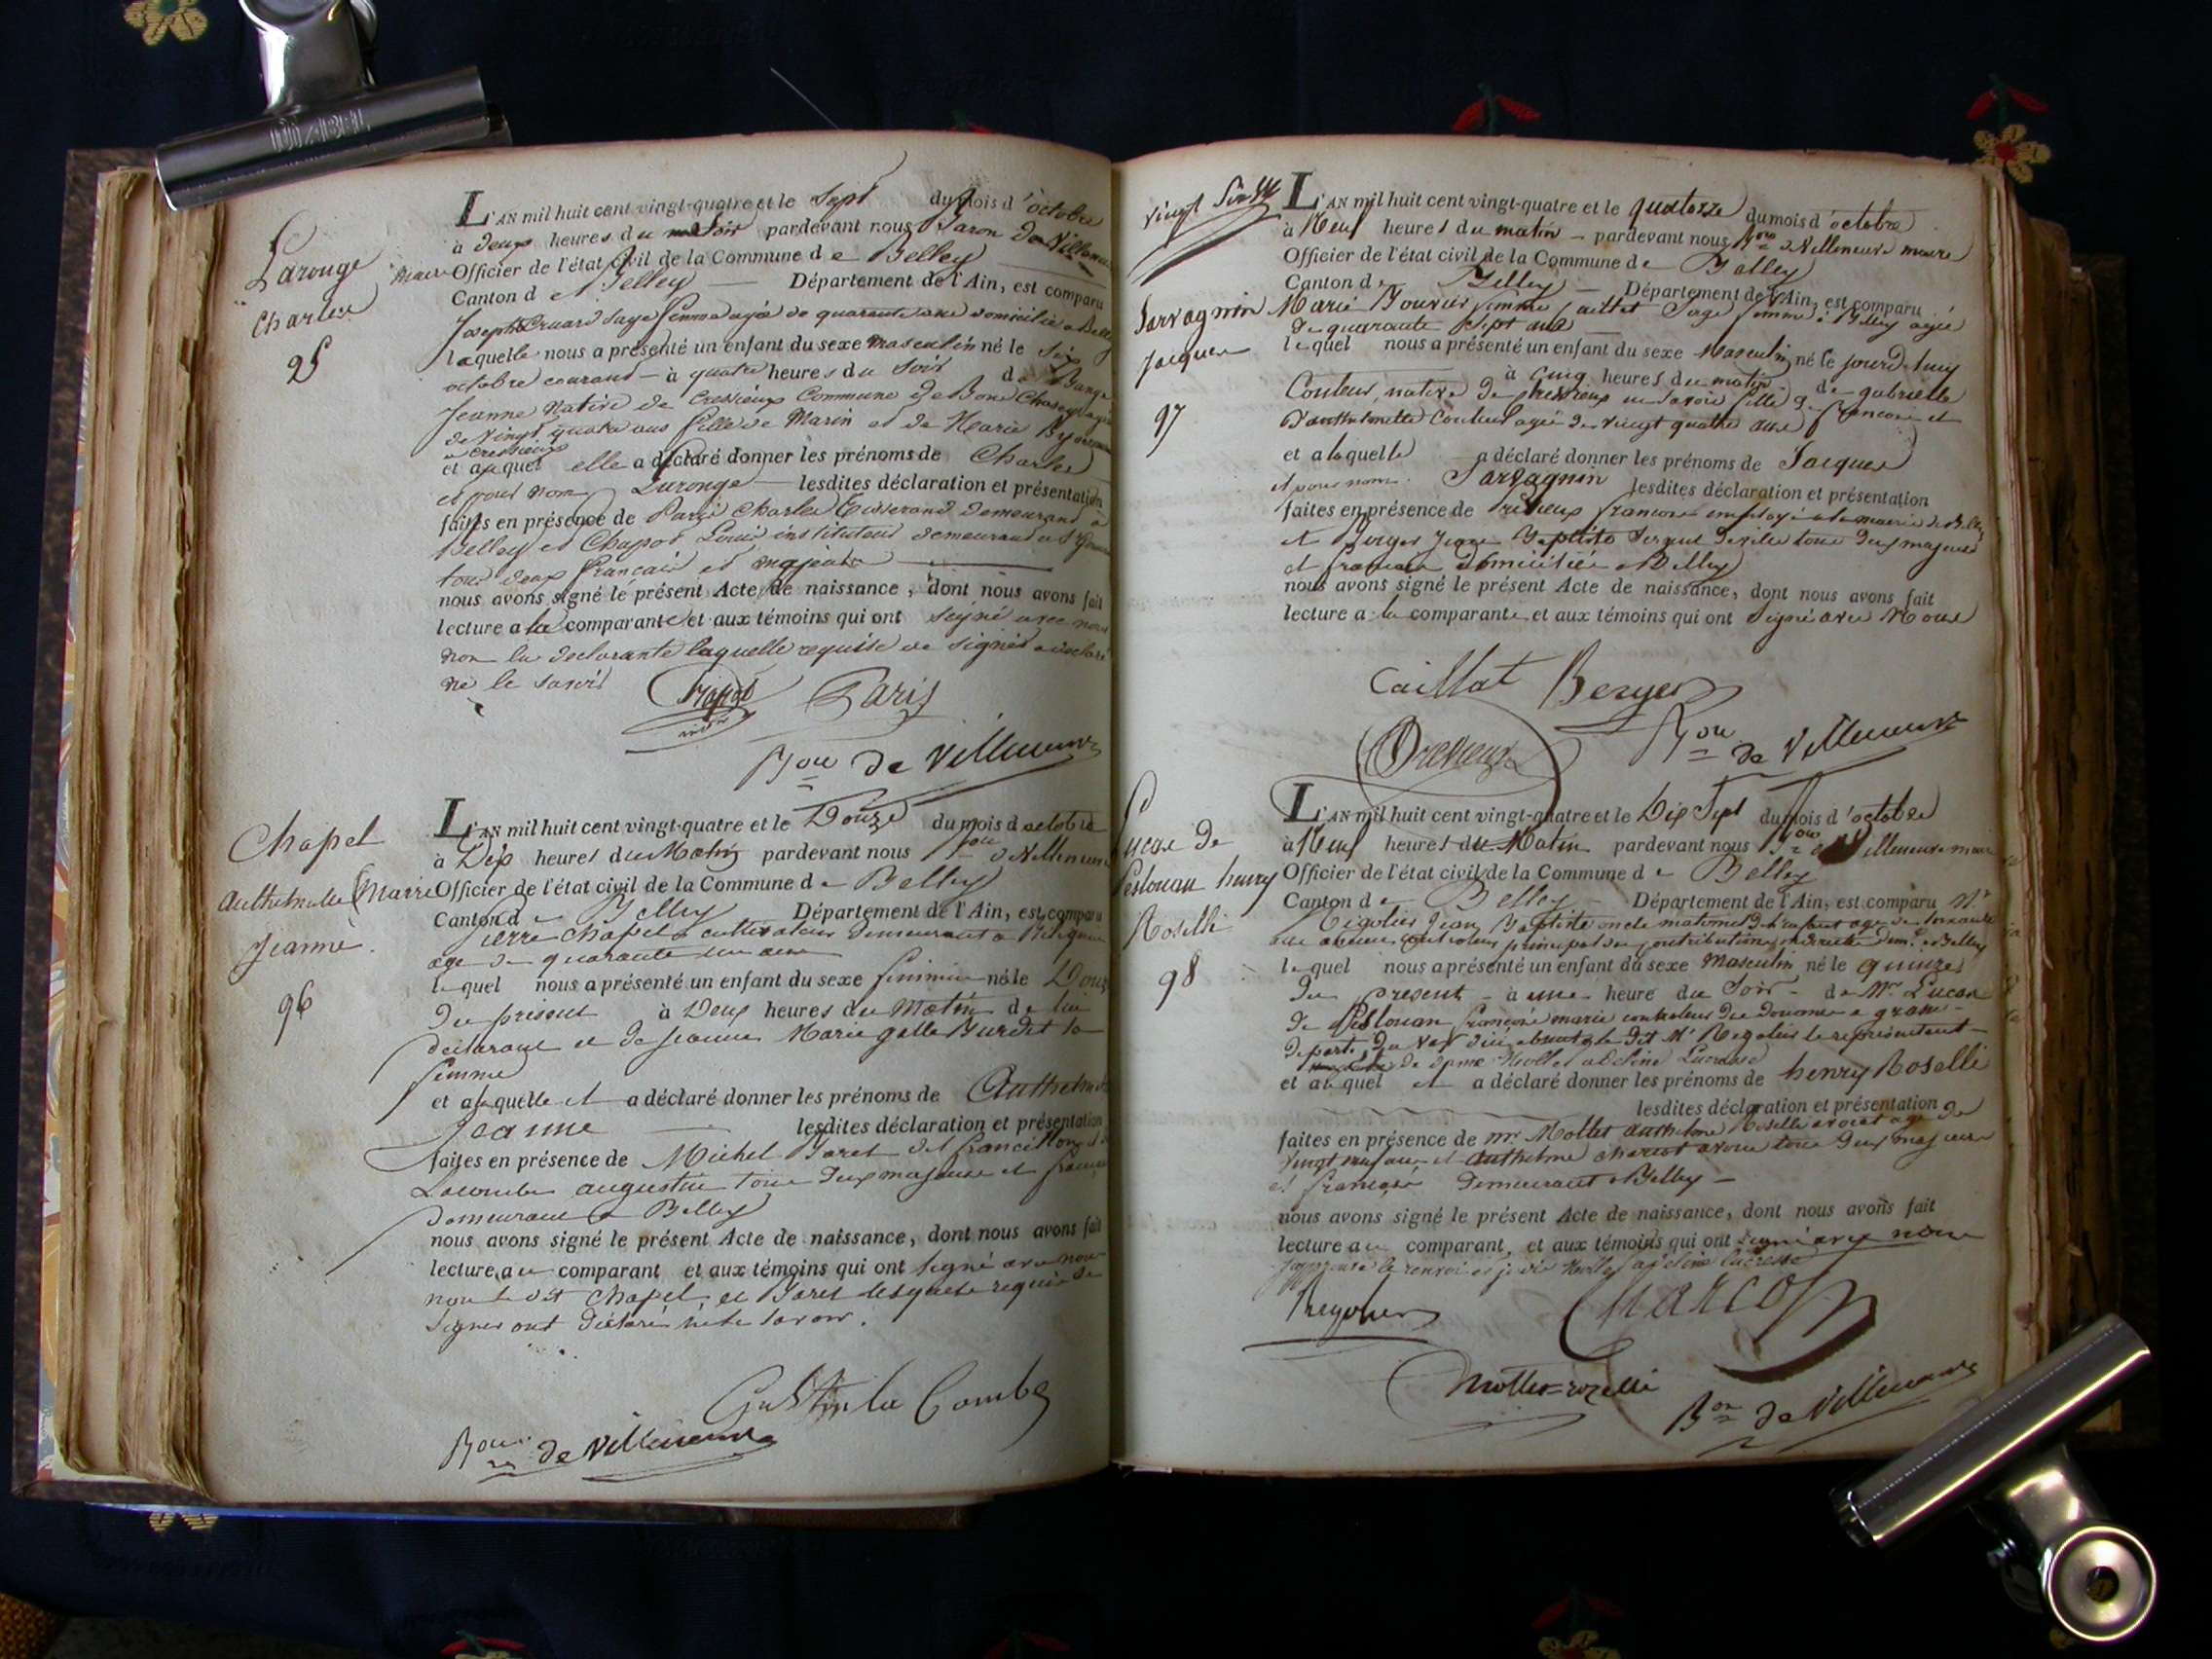 Larouge
Charles
95
L'AN mil huit cent vingt-quatre et le Sept du mois d'octobre
à deux heures du Soir pardevant nous Baron de Villeneuve
Maire Officier de l'état civil de la Commune de Belley
Canton de Belley Département de l'Ain, est comparu
Josephte sage femme agée de quarante domiciliée a Belley
laquelle nous a présenté un enfant du sexe masculin né le six
octobre courant à quatre heures du Soir de
Jeanne native de Cressieux Commune de
de Vingt quatre ans fille de Marin et de Marie
a Cressieux
et auquel elle a déclaré donner les prénoms de Charles
et pour nom Larouge lesdites déclaration et présentation
faites en présence de Paris Charles demeurant a
Belley et Chapot Louis instituteur demeurant a
tous deux français et majeurs
nous avons signé le présent Acte de naissance, dont nous avons fait
lecture a la comparante et aux témoins qui ont signé avec nous
non la declarante laquelle requise de signer a déclaré
ne le savoir
Chapot Paris
Bon de Villeneuve
Chapel
Anthelmette
Jeanne
96
L'AN mil huit cent vingt-quatre et le Douze du mois d octobre
à Dix heures du Matin pardevant nous Bon de Villeneuve
Maire Officier de l'état civil de la Commune de Belley
Canton de Belley Département de l'Ain, est comparu
Pierre Chapel cultivateur demeurant a
age de quarante un ans
lequel nous a présenté un enfant du sexe feminin né le Douze
du present à Deux heures du Matin de lui
declarant et de Jeanne Marie Burdet sa
femme
et a laquelle il a déclaré donner les prénoms de Anthelmette
Jeanne lesdites déclaration et présentation
faites en présence de Michel et de
Lacombe augustin tous deux majeurs et français
demeurant a Belley
nous avons signé le présent Acte de naissance, dont nous avons fait
lecture au comparant et aux témoins qui ont signé avec nous
non le dit Chapel et lesquels requis de
signer ont déclaré ne le savoir.
Gustin la Combe
Bon de Villeneuve
Sarvagnin
Jacques
97
L'AN mil huit cent vingt-quatre et le quatorze du mois d'octobre
à Neuf heures du matin pardevant nous Bon de Villeneuve maire
Officier de l'état civil de la Commune de Belley
Canton de Belley Département de l'Ain, est comparu
Marie Bouvier femme Caillat Sage femme a Belley agée
de quarante sept ans
lequel nous a présenté un enfant du sexe Masculin né le jourd'huy
à cinq heures du matin de gabrielle
Couleur, native de en Savoie fille de francois et
d'anthelmette Couleur agée de vingt quatre ans
et a laquelle a déclaré donner les prénoms de Jacques
et pour nom Sarvagnin lesdites déclaration et présentation
faites en présence de francois employé a la mairie de Belley
et Berger Jean Baptiste Sergent de ville tous deux majeurs
et francais domiciliés a Belley
nous avons signé le présent Acte de naissance, dont nous avons fait
lecture a la comparante et aux témoins qui ont signé avec Nous
Caillat Berger
Bon de Villeneuve
Lucas de
Peslouan henry
Roselli
98
L'AN mil huit cent vingt-quatre et le Dix Sept du mois d'octobre
à Neuf heures du Matin pardevant nous Bon de Villeneuve maire
Officier de l'état civil de la Commune de Belley
Canton de Belley Département de l'Ain, est comparu Mr
Rigolier Jean Baptiste oncle maternel de l'enfant age de soixante
principal des contributions demt a Belley
lequel nous a présenté un enfant du sexe Masculin né le quinze
du present à une heure du Soir de Mr Lucas
de Peslouan françois marie controleur des Douanes a
departt du Var absent le dit Mr Rigolier le représentant
de dame Mollet adeline Lucresse
et auquel il a déclaré donner les prénoms de henry Roselli
lesdites déclaration et présentation
faites en présence de mr Mollet anthelme Roselli avocat age de
Vingt neuf ans et anthelme Charcot avoué tous deux majeurs
et français demeurant a Belley
nous avons signé le présent Acte de naissance, dont nous avons fait
lecture au comparant, et aux témoins qui ont signé avec nous
J'approuve le renvoi Mollet adeline lucresse
Rigolier Charcot
Mollet=rozelli
Bon de Villeneuve